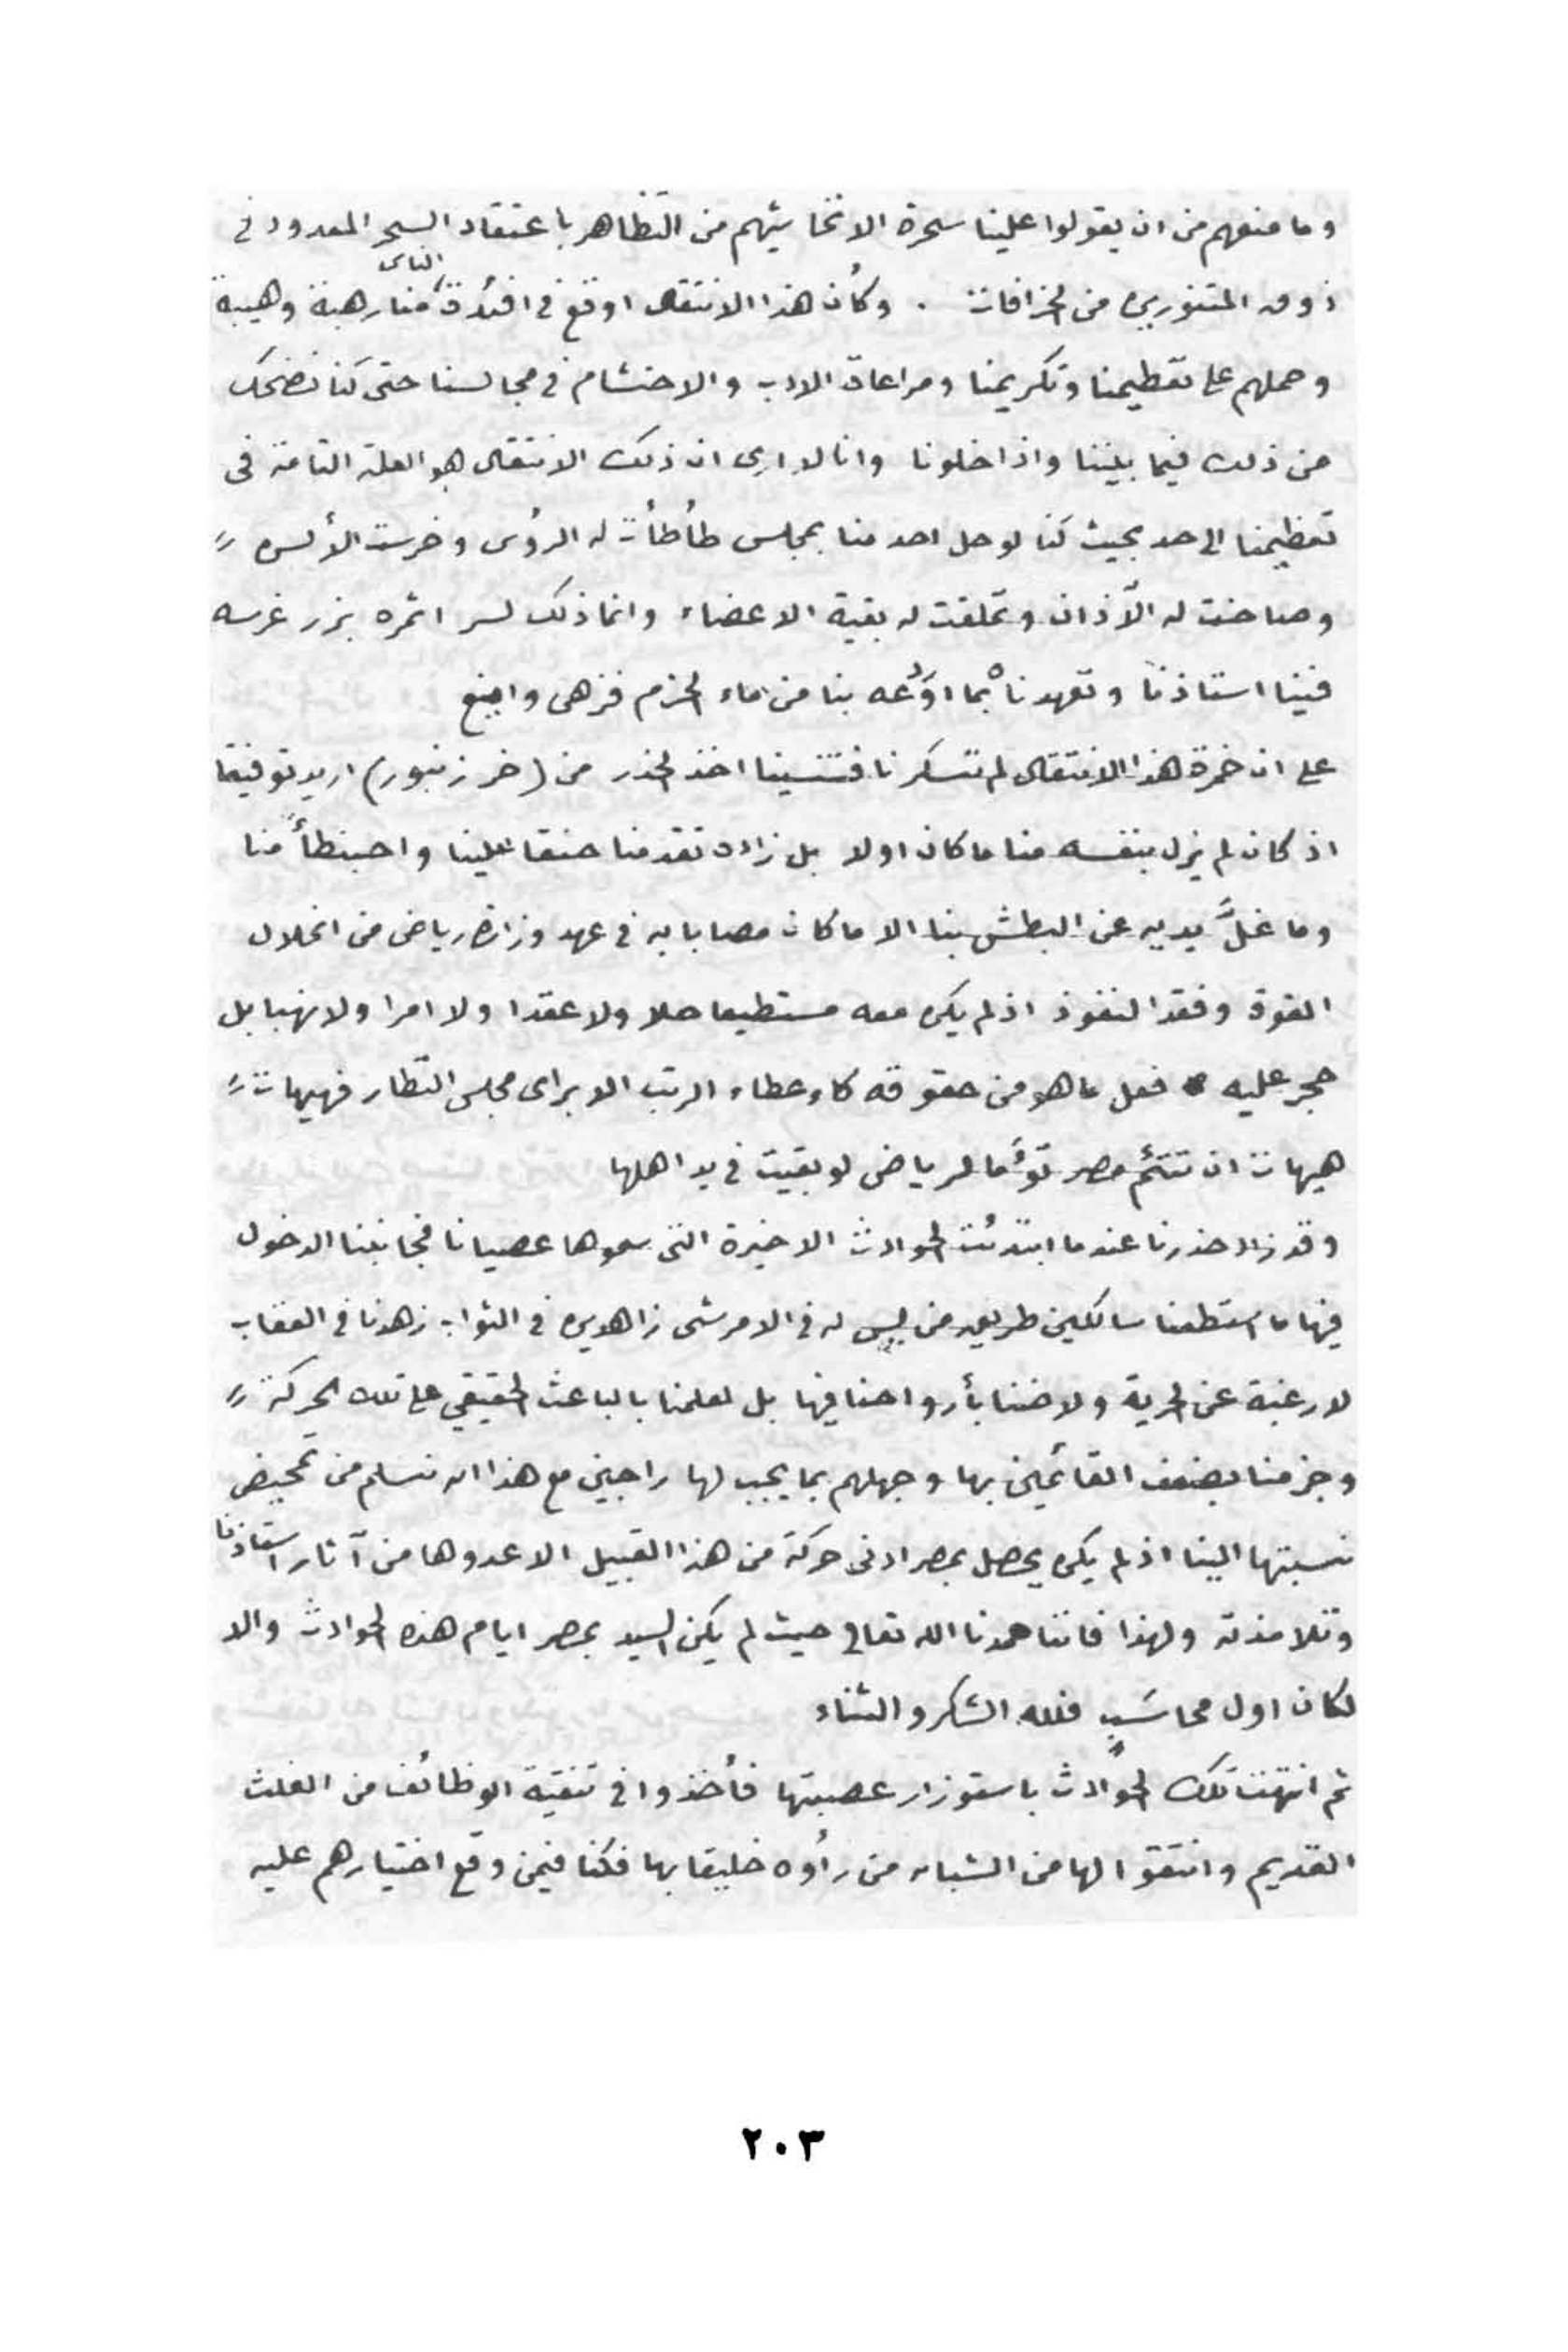 وما منعهم من ان يقولوا علينا سحرة الا تحاشيهم من التظاهر باعتقاد السحر المعدود في
ذوق المتنورين من الخرافات . وكأن هذا الانتقال اوقع في افئدة الناس منا رهبة وهيبة
وحملهم على تعظيمنا وتكريمنا ومراعاة الادب والاحتشام في مجالسنا حتى كنا نضحك
من ذلك فيما بيننا واذا خلونا وانا لا ارى ان ذلك الانتقال هو العلة التامة فى
تعظيمنا الى حد بحيث كنا لو حل احد منا بمجلس طأطأت له الرؤس وخرست الألسن
وصاخت له الآذان وتملقت له بقية الاعضاء وانما ذلك لسر اثمره بزر غرسه
فينا استاذنا وتعهدناه بما اودعه بنا من ماء الحزم فزهى واينع
على ان خمرة هذا الانتقال لم تسكرنا فتنسينا اخذ الحذر من (خر زنبور) اريد توفيقا
اذ كان لم يزل بنفسه منا ما كان اولا بل زاده تقدمنا حنقا علينا واحبنطأً منا
وما غلَّ يديه عن البطش بنا الا ما كان مصابا به في عهد وزارة رياض من انحلال
القوة وفقد النفوذ اذ لم يكن معه مستطيعا حلا ولا عقدا ولا امرا ولا نهيا بل
حجر عليه فعل ما هو من حقوقه كاعطاء الرتب الا براى مجلس النظار فهيهات
هيهات ان تتئم مصر توأما لرياض لو بقيت في يد اهلها
وقد زاد حذرنا عندما ابتدئت الحوادث الاخيرة التى سموها عصيانا فجانبنا الدخول
فيها ما استطعنا سالكين طريق من ليس له في الامر شى زاهدين في الثواب زهدنا في العقاب
لا رغبة عن الحرية ولا ضنا بأرواحنا فيها بل لعلمنا بالباعث الحقيقي على تلك الحركة
وجزمنا بضعف القائمين بها وجهلهم بما يجب لها راجين مع هذا ان نسلم من تمحيض
نسبتها الينا اذ لم يكن يحصل بمصر ادنى حركة من هذا القبيل الا عدوها من آثار استاذنا
وتلامذته ولهذا فاننا حمدنا الله تعالى حيث لم يكن السيد بمصر ايام هذه الحوادث والا
لكان اول محاسَبٍ فلله الشكر والثناء
ثم انتهت تلك الحوادث باستوزار عصبتها فأخذوا في تنقية الوظائف من الغلث
القديم وانتقوا لها من الشبان من رأوه خليقا بها فكنا فيمن وقع اختيارهم عليه
٢٠٣